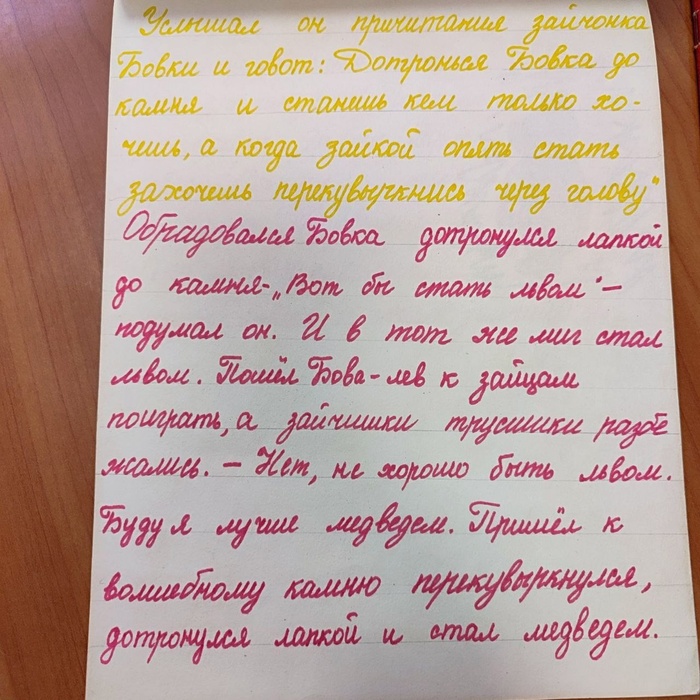 Услышал он причитания зайчонка
Бовки и говот: Дотронься Бовка до
камня и станешь кем только хо-
чешь, а когда зайкой опять стать
захочешь перекувыркнись через голову"
Обрадовался Бовка дотронулся лапкой
до камня-„Вот бы стать львом"—
подумал он. И в тот же миг стал
львом. Пошёл Бова-лев к зайцам
поиграть, а зайчишки трусишки разбе
жались. – Нет, не хорошо быть львом.
Буду я лучше медведем. Пришёл к
волшебному камню перекувыркнулся,
дотронулся лапкой и стал медведем.